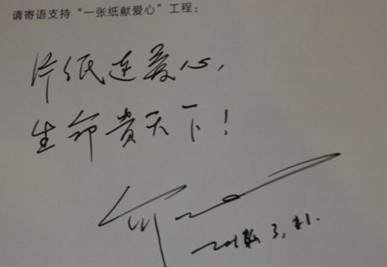 请寄语支持“一张纸献爱心”工程：
片纸连爱心，
生命贵天下！